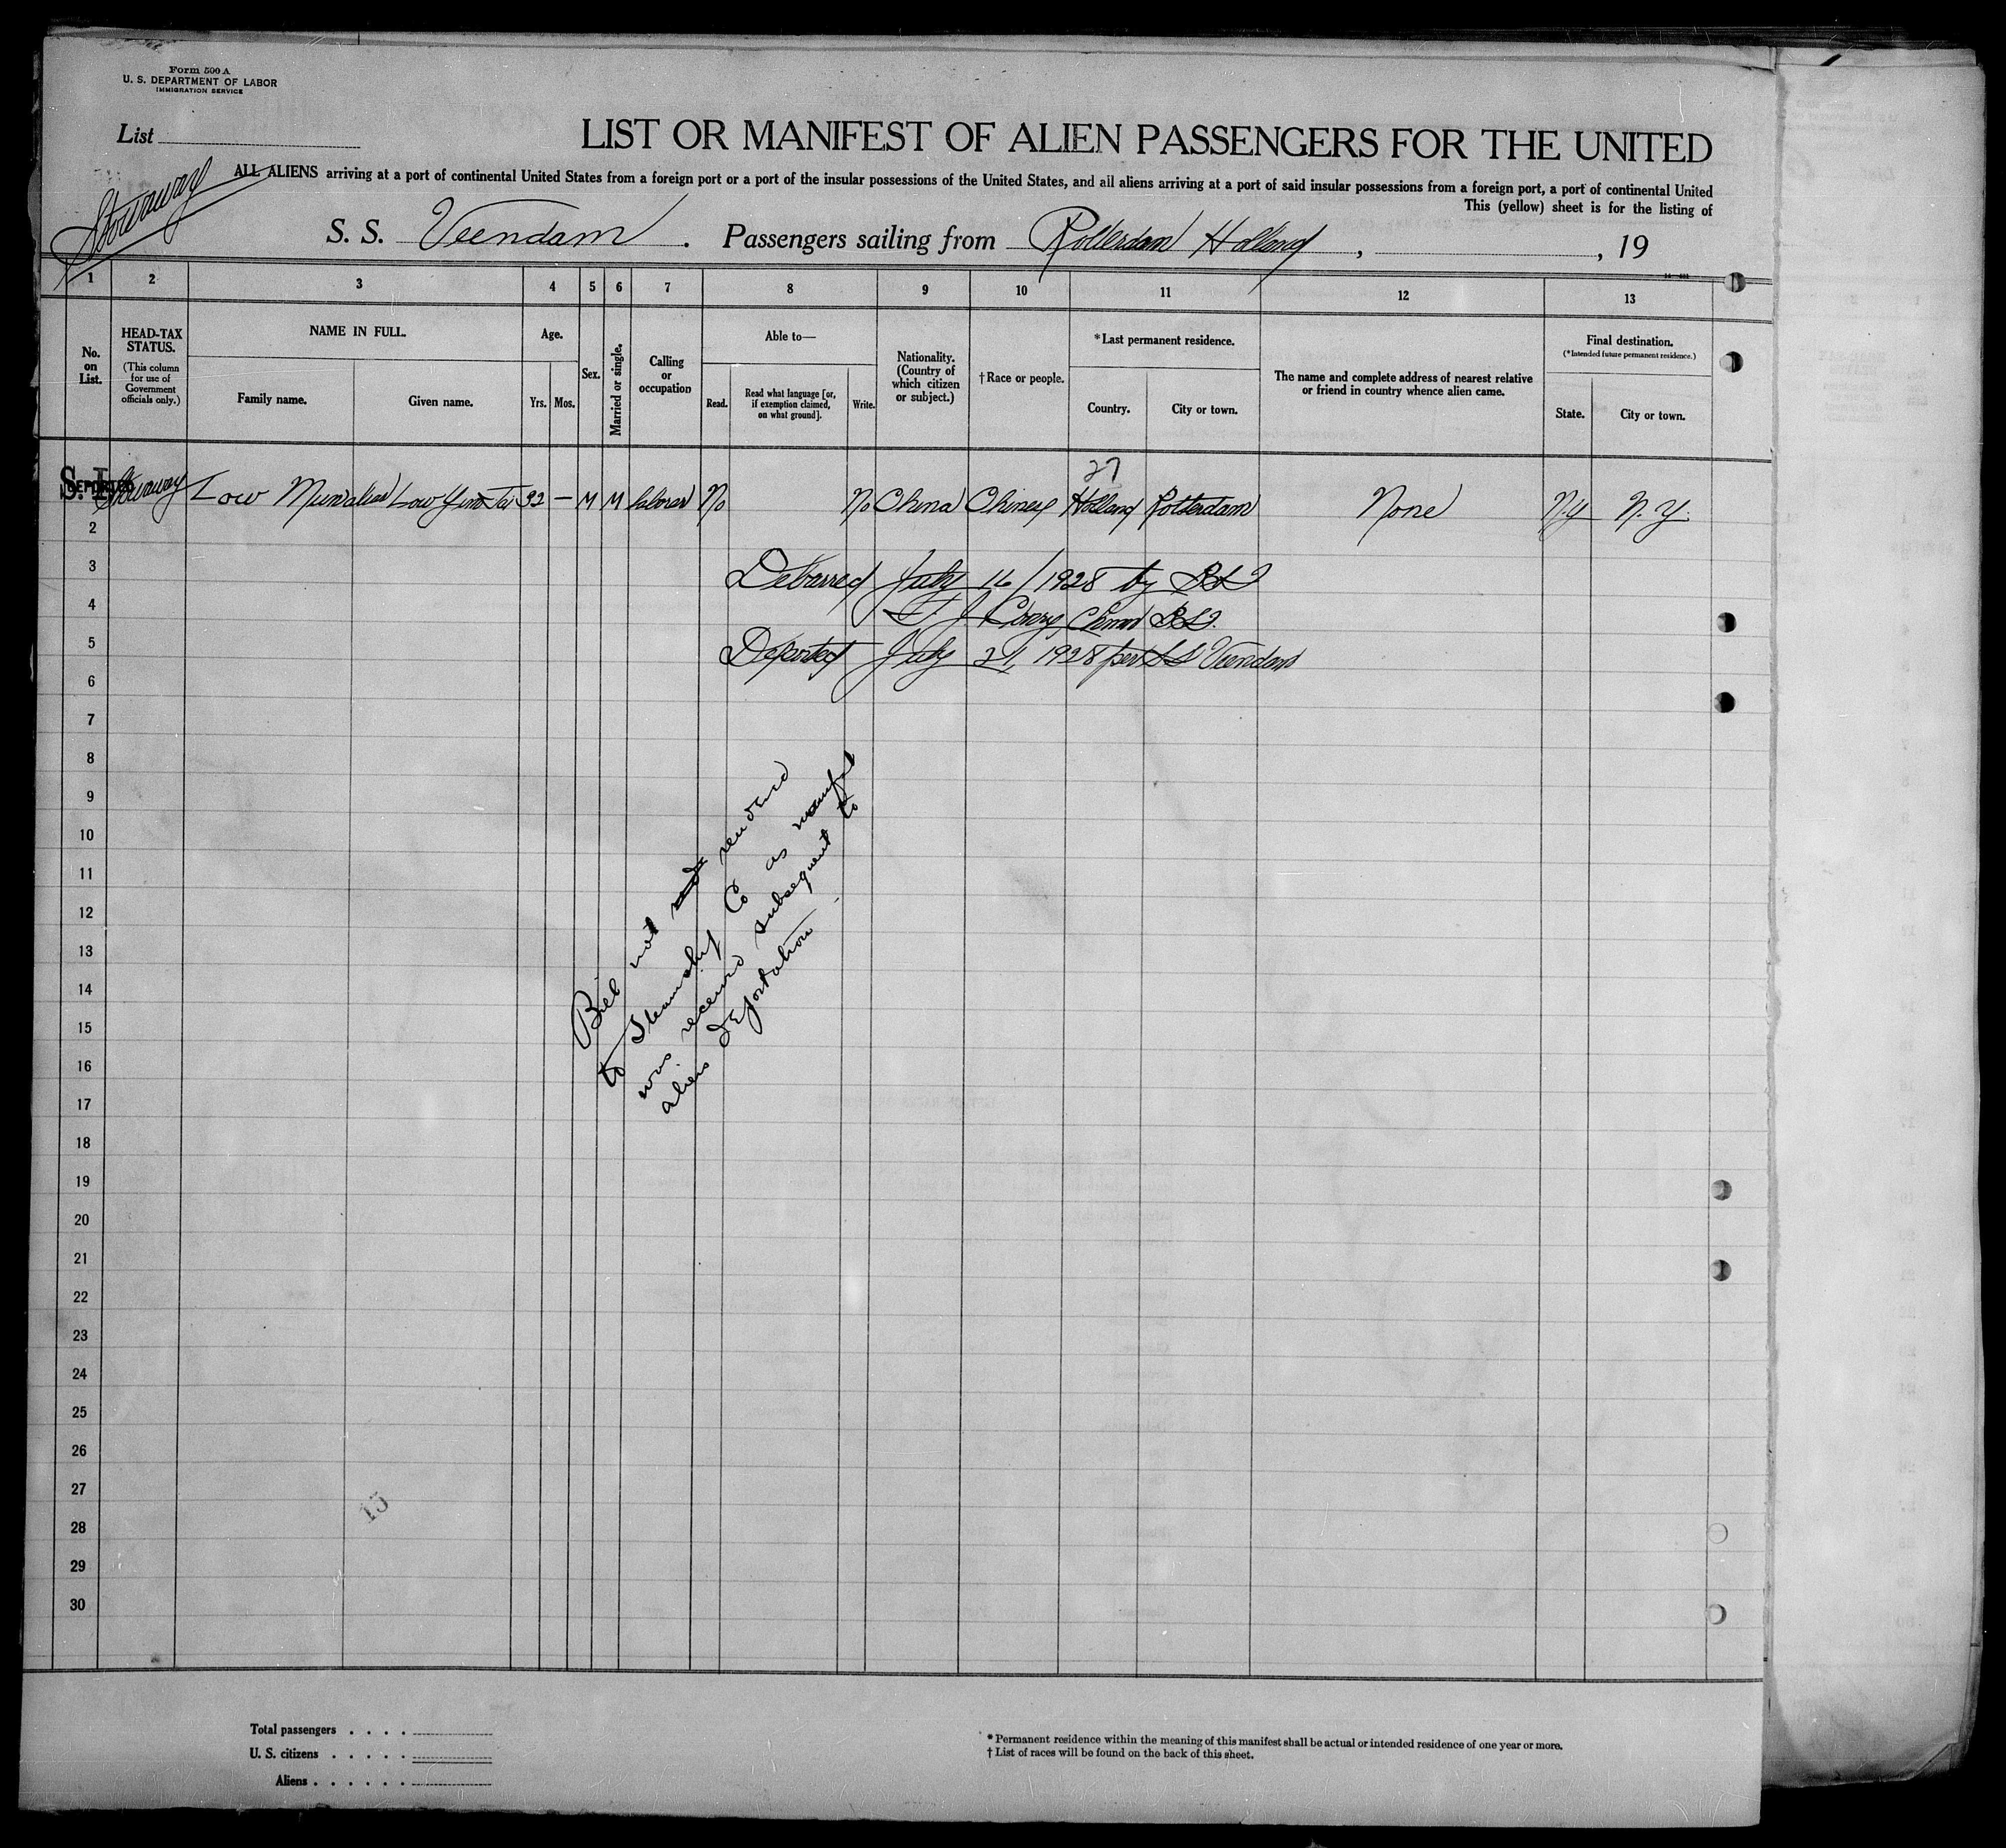 Form 500 A
U. S. DEPARTMENT OF LABOR
IMMIGRATION SERVICE
List
LIST OR MANIFEST OF ALIEN PASSENGERS FOR THE UNITED
Stowaway
ALL ALIENS arriving at a port of continental United States from a foreign port or a port of the insular possessions of the United States, and all aliens arriving at a port of said insular possessions from a foreign port, a port of continental United
This (yellow) sheet is for the listing of
S. S. Veendam . Passengers sailing from Rotterdam Holland , , 19
1 2 3 4 5 6 7 8 9 10 11 12 13
No. on List.
HEAD-TAX STATUS.
(This column for use of Government officials only.)
NAME IN FULL.
Family name.
Given name.
Age.
Yrs. Mos.
Sex.
Married or single.
Calling or occupation
Able to—
Read.
Read what language [or, if exemption claimed, on what ground].
Write.
Nationality. (Country of which citizen or subject.)
†Race or people.
*Last permanent residence.
Country.
City or town.
The name and complete address of nearest relative or friend in country whence alien came.
Final destination.
(*Intended future permanent residence.)
State.
City or town.
27
S. I. DEPORTED Stowaway Low Low 32 — M M laborer No No China Chinese Holland Rotterdam None N.Y N.Y.
2
3 Debarred July 16/1928 by BSI
4 BSI.
5 Deported July 21, 1928 per SS Veendam
6
7
8
9
10
11
12
13
14
15
16
17
18
19
20
21
22
23
24
25
26
27
28
29
30
Bill not rendered
to Steamship Co as manifest
was received subsequent to
aliens deportation.
15
Total passengers . . . .
U. S. citizens . . . . .
Aliens . . . . . .
* Permanent residence within the meaning of this manifest shall be actual or intended residence of one year or more.
† List of races will be found on the back of this sheet.